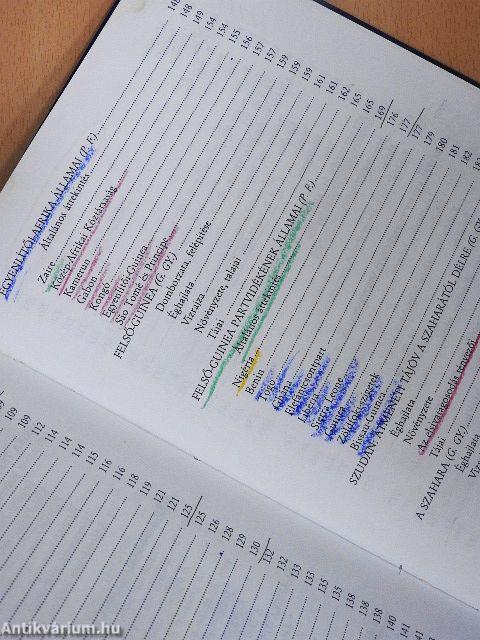 EGYENLÍTŐI-AFRIKA ÁLLAMAI (P. F.)
Általános áttekintés
Zaire
Közép-Afrikai Köztársaság
Kamerun
Gabon
Kongó
Egyenlítői-Guinea
São Tomé és Príncipe
FELSŐ-GUINEA (G. GY.)
Domborzata, felépítése
Éghajlata
Vízrajza
Növényzete, talajai
Tájai
FELSŐ-GUINEA PARTVIDÉKÉNEK ÁLLAMAI (P. F.)
Általános áttekintés
Nigéria
Benin
Togo
Ghána
Elefántcsontpart
Libéria
Sierra Leone
Guinea
Zöldfoki-szigetek
Bissau-Guinea
SZUDÁN: ÁTMENETI TÁJÖV A SZAHARÁTÓL DÉLRE (G. G
Éghajlata
Növényzete
Az elsivatagosodás tényezői
Tájai
A SZAHARA (G. GY.)
Éghajlata
148
148
149
154
154
155
156
157
157
159
159
161
161
162
165
165
169
176
177
177
179
180
181
182
109
112
114
114
115
116
118
119
121
121
125
125
126
128
129
130
132
132
133
133
135
135
138
138
140
141
Antikvárium.hu